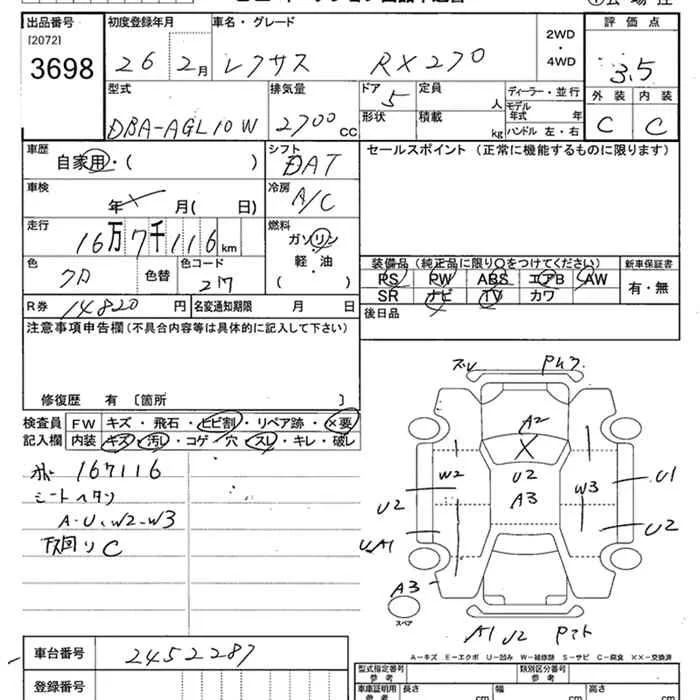 出品番号 初度登録年月 車名・グレード 2WD・4WD 評価点
[2072]
3698 26 2月 レクサス RX270 3.5
外装 内装
C C
型式 排気量 ドア 定員 人 ディーラー・並行
DBA-AGL10W 2700cc 5
形状 積載 kg モデル年式 年
ハンドル 左・右
車歴 自家用・( )
シフト DAT
セールスポイント (正常に機能するものに限ります)
車検 年 月( 日)
冷房 A/C
走行 16万7千116km
燃料 ガソリン 軽・油 ( )
色 クロ 色替 色コード 217
装備品 (純正品に限り○をつけてください) 新車保証書
PS PW ABS エアB AW 有・無
SR ナビ TV カワ
R券 14820円 名変通知期限 月 日
後日品
注意事項申告欄(不具合内容等は具体的に記入して下さい)
修復歴 有 [箇所 ]
検査員 FW キズ・飛石・ヒビ割・リペア跡・×要
記入欄 内装 キズ・汚し・コゲ・穴・スレ・キレ・破レ
167116
シートヘタリ
A・U、W2-W3
下回りC
ズレ
A2
U2
A3
W2
W3
U1
U2
U2
U,A1
A3
スペア
A1 U2
A-キズ E-エクボ U-凹み W-補修跡 S-サビ C-腐食 ××-交換済
車台番号 2452287
型式指定番号 参考 類別区分番号 参考
登録番号
車庫証明用 参考 長さ cm 幅 cm 高さ cm